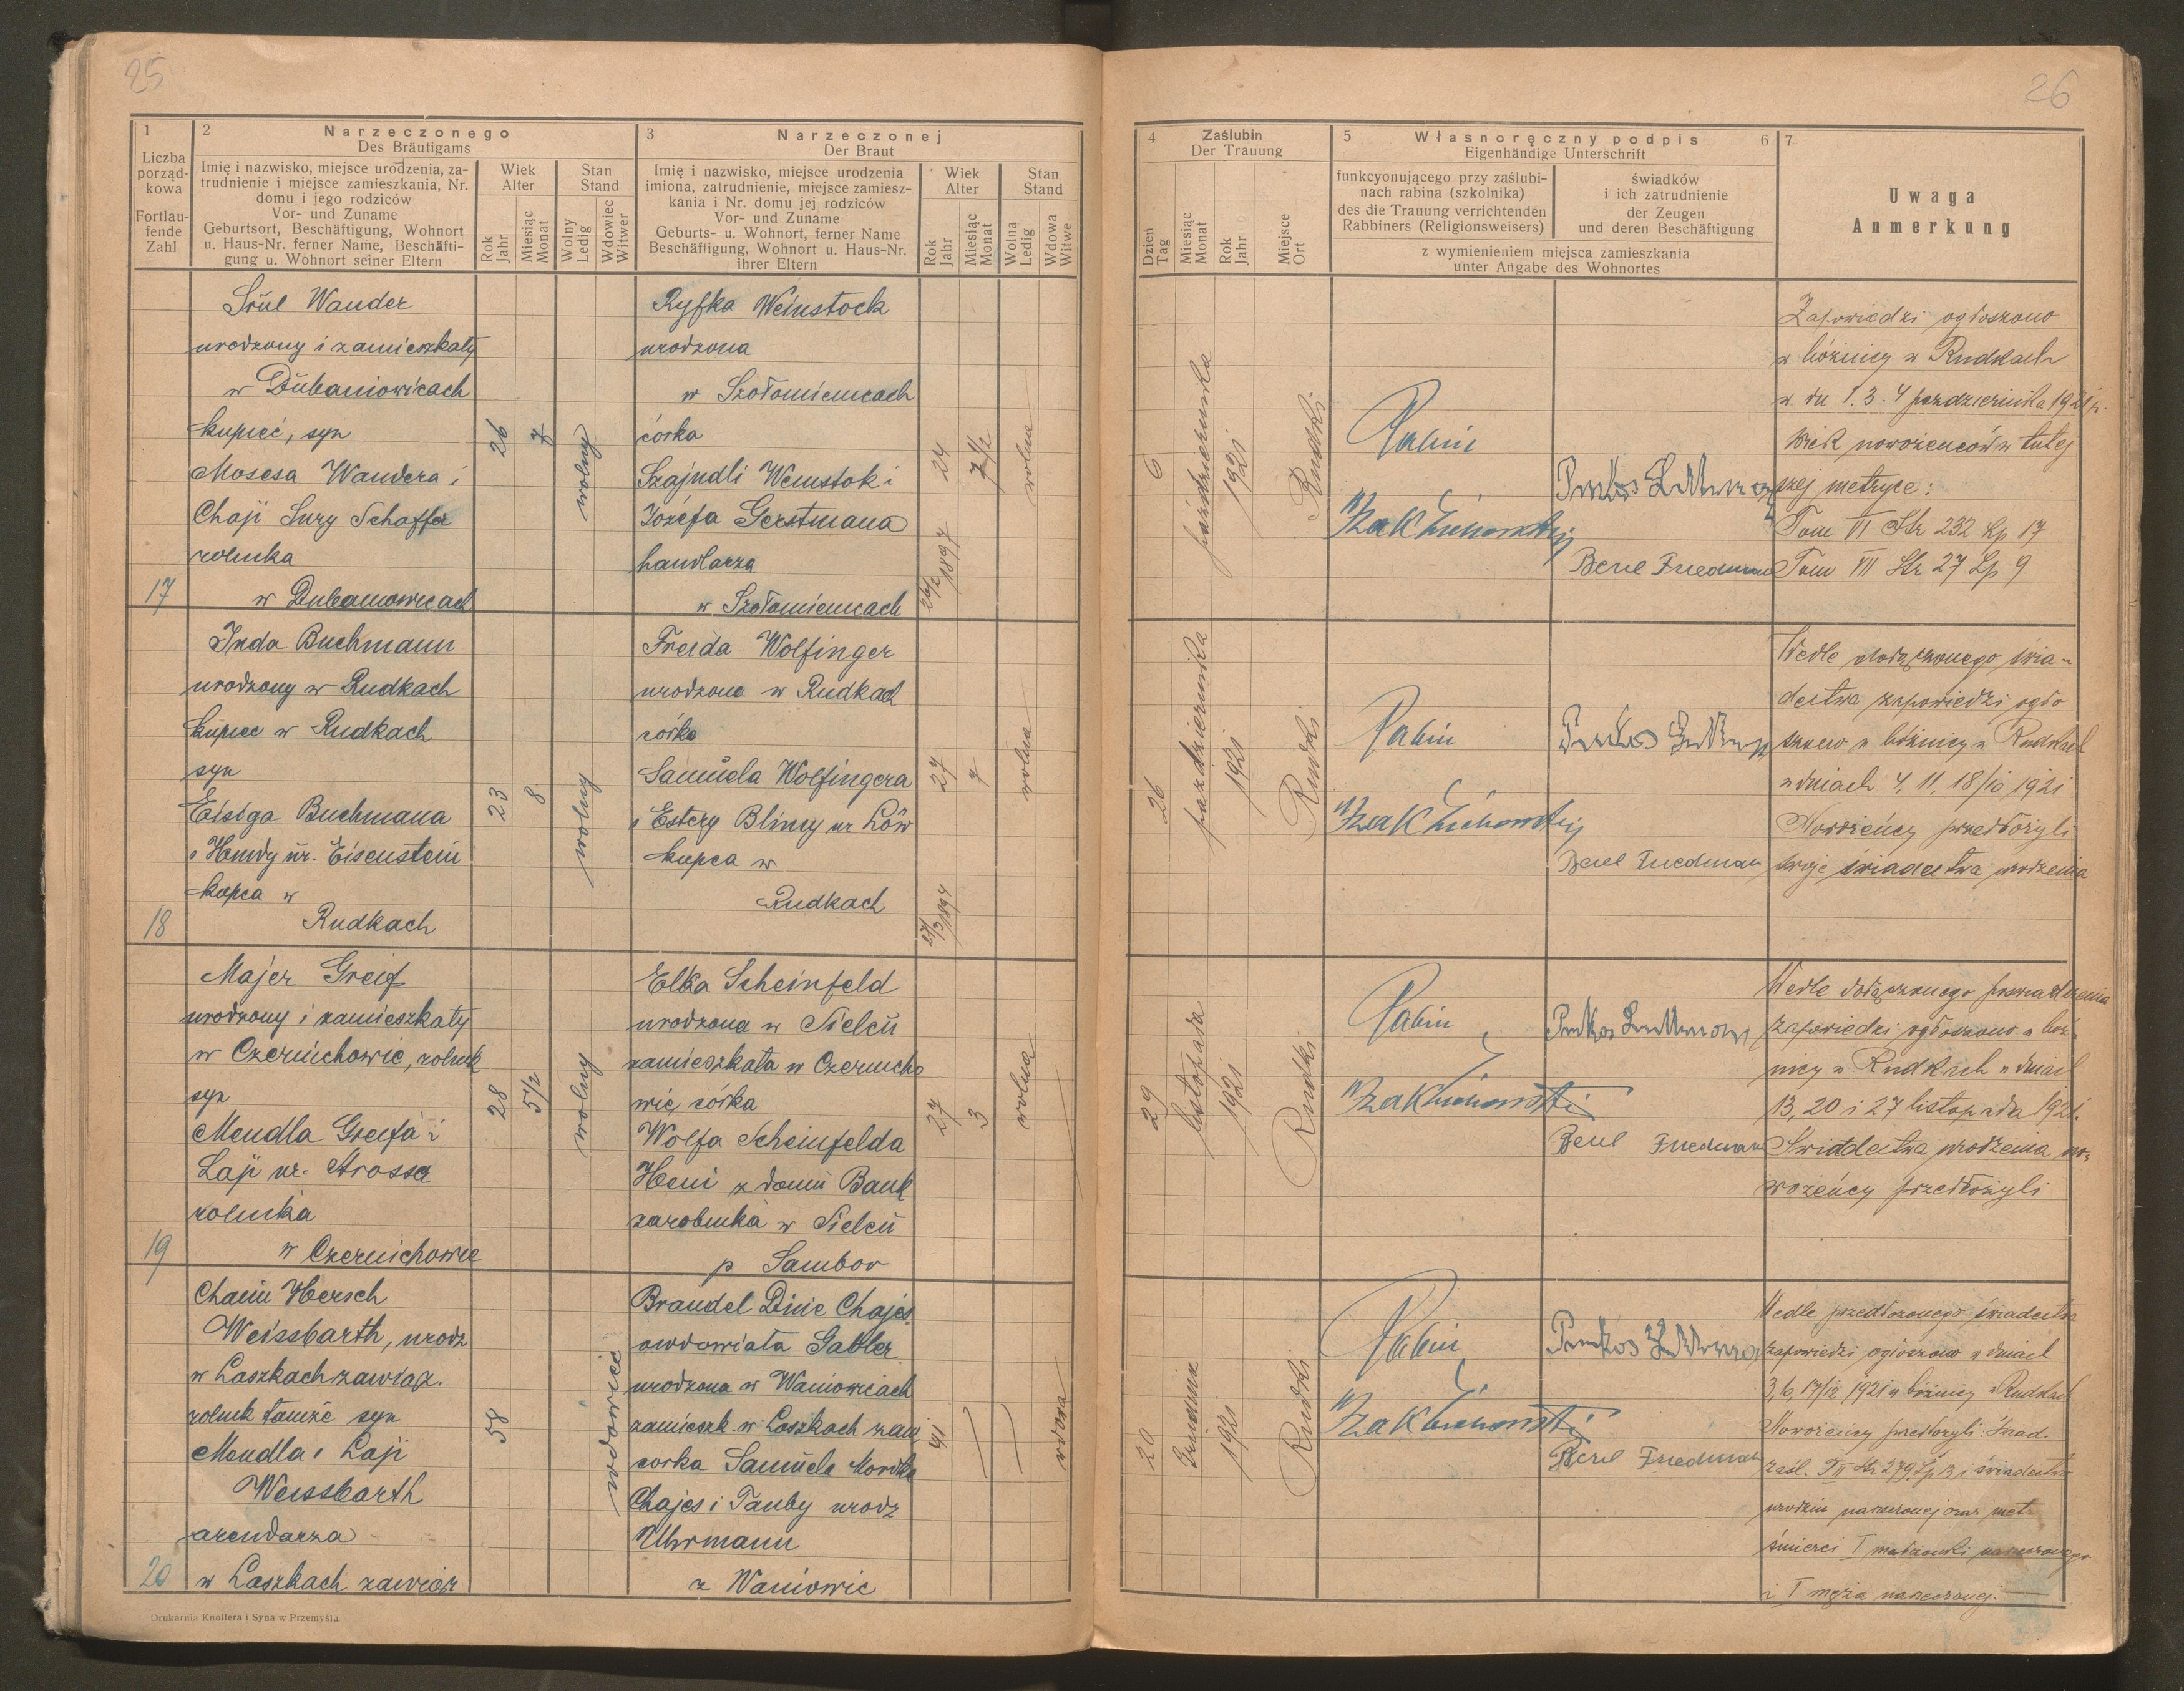 25
1
Liczba
porząd-
kowa
Fortlau-
fende
Zahl
2
Narzeczonego
Des Bräutigams
Imię i nazwisko, miejsce urodzenia, za-
trudnienie i miejsce zamieszkania, Nr.
domu i jego rodziców
Vor- und Zuname
Geburtsort, Beschäftigung, Wohnort
u. Haus-Nr. ferner Name, Beschäfti-
gung u. Wohnort seiner Eltern
Wiek
Alter
Rok
Jahr
Miesiąc
Monat
Stan
Stand
Wolny
Ledig
Wdowiec
Witwer
3
Narzeczonej
Der Braut
Imię i nazwisko, miejsce urodzenia
imiona, zatrudnienie, miejsce zamiesz-
kania i Nr. domu jej rodziców
Vor- und Zuname
Geburts- u. Wohnort, ferner Name
Beschäftigung, Wohnort u. Haus-Nr.
ihrer Eltern
Wiek
Alter
Rok
Jahr
Miesiąc
Monat
Stan
Stand
Wolna
Ledig
Wdowa
Witwe
17
Srul Wander
urodzony i zamieszkały
w Dubaniowicach
kupiec, syn
Mosesa Wandera i
Chaji Sury Schaffer
rolnika
w Dubaniowicach
26
7
wolny
Ryfka Weinstock
urodzona
w Szołomienicach
córka
Szajndli Weinstok i
Józefa Gerstmana
handlarza
w Szołomienicach
24
7 1/2
1897
wolna
18
Juda Buchmann
urodzony w Rudkach
kupiec w Rudkach
syn
Eisiga Buchmana
i Hendy ur. Eisenstein
kupca w
Rudkach
23
8
wolny
Freida Wolfinger
urodzona w Rudkach
córka
Samuela Wolfingera
i Estery Blimy ur Löw
kupca w
Rudkach
27
7
27/3 1894
wolna
19
Majer Greif
urodzony i zamieszkały
w Czernichowie, rolnik
syn
Mendla Greifa i
Laji ur. Strosser
rolnika
w Czernichowie
28
5 1/2
wolny
Elka Scheinfeld
urodzona w Sielcu
zamieszkała w Czernicho
wie, córka
Wolfa Scheinfelda
Heni z domu Bank
zarobnika w Sielcu
p Sambor
27
3
wolna
20
Chaim Hersch
Weissbarth, urodz
w Laszkach zawiąz.
rolnik tamże syn
Mendla i Laji
Weissbarth
arendarza
w Laszkach zawiąz
58
wdowiec
Brandel Dine Chajes
owdowiała Gabler
urodzona w Waniowicach
zamieszk. w Laszkach zaw
córka Samuela Mordka
Chajes i Tauby urodz
Uhrmann
z Waniowic
41
wdowa
Drukarnia Knollera i Syna w Przemyślu
26
4
Zaślubin
Der Trauung
Dzień
Tag
Miesiąc
Monat
Rok
Jahr
Miejsce
Ort
5
Własnoręczny podpis
Eigenhändige Unterschrift
6
funkcyonującego przy zaślubi-
nach rabina (szkolnika)
des die Trauung verrichtenden
Rabbiners (Religionsweisers)
świadków
i ich zatrudnienie
der Zeugen
und deren Beschäftigung
z wymienieniem miejsca zamieszkania
unter Angabe des Wohnortes
7
Uwaga
Anmerkung
6
października
1921
Rudki
Rabin
Berl Friedman
Zapowiedzi ogłoszono
w bóżnicy w Rudkach
w dn 1. 3. 4 października 1921 r.
Wiek nowożeńców w tutej
szej metryce:
Tom VI Str 232 Lp 17
Tom VII Str 27 Lp 9
26
października
1921
Rudki
Rabin
Berl Friedman
Wedle dołączonego świa-
dectwa zapowiedzi ogło
szono w bóżnicy w Rudkach
w dniach 4, 11, 18/10 1921
Nowożeńcy przedłożyli
swoje świadectwa urodzenia
29
listopada
1921
Rudki
Rabin
Berl Friedman
Wedle dołączonego poświadczenia
zapowiedzi ogłoszono w bóż-
nicy w Rudkach w dniach
13, 20 i 27 listopada 1921.
Świadectwa urodzenia no-
wożeńcy przedłożyli
20
Grudnia
1921
Rudki
Rabin
Berl Friedman
Wedle przedłożonego świadectwa
zapowiedzi ogłoszono w dniach
3, 6, 17/12 1921 w bóżnicy w Rudkach
Nowożeńcy przedłożyli:
i świadectwo
urodzin narzeczonej oraz metr
śmierci I małżonki narzeczonego
i I męża narzeczonej.